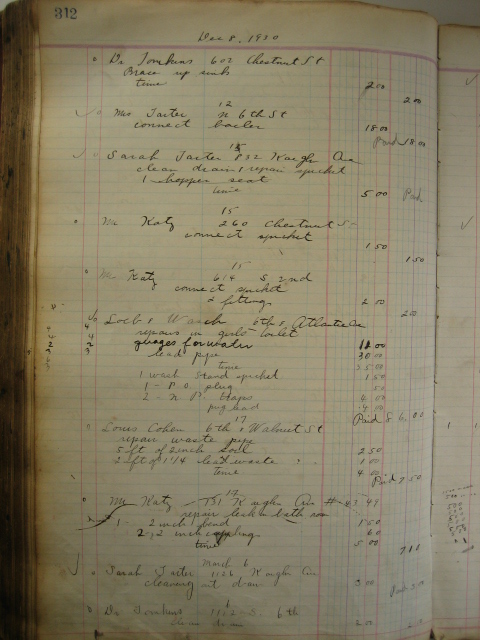 312
Dec 8, 1930
Dr Tomkins 602 Chestnut St
Brace up sink
time 2 00
2 00
12
Mrs Tarter n 6th St
connect boiler 18 00
Paid 18.00
Sarah Tarter 832 Kaighn Ave
clean drain & repair spicket
1 hopper seat
time 5 00 Paid
15
Mr Katz 260 Chestnut St
connect spicket
1 50
1 50
15
Mr Katz 614 S. 2nd
connect spicket
2 fittings 2 00
200
Loeb & 6th & Atlantic
repairs in girls toilet
for water 11 00
lead pipe 30 00
time
1 wash stand spicket 1 50
1 - P.O. plug 50
2 - N P. traps 4 00
pig lead
17 Paid
Louis Cohen 6th & Walnut St
repair waste pipe
5 ft of 2 inch soil 2 50
2 ft of 1 1/4 lead waste 1 00
time 4 00
Paid 7 50
17
Mr Katz 731 Kaighn Ave
repair leak in bath room
1 - 2 inch bend 1 50
2 - 2 inch couplings 60
time 5 00
7 10
March 6
Sarah Tarter 1126 Kaighn Ave
cleaning out drain 3 00
Dr Tomkins 1112 S. 6th
clean drain 2 00